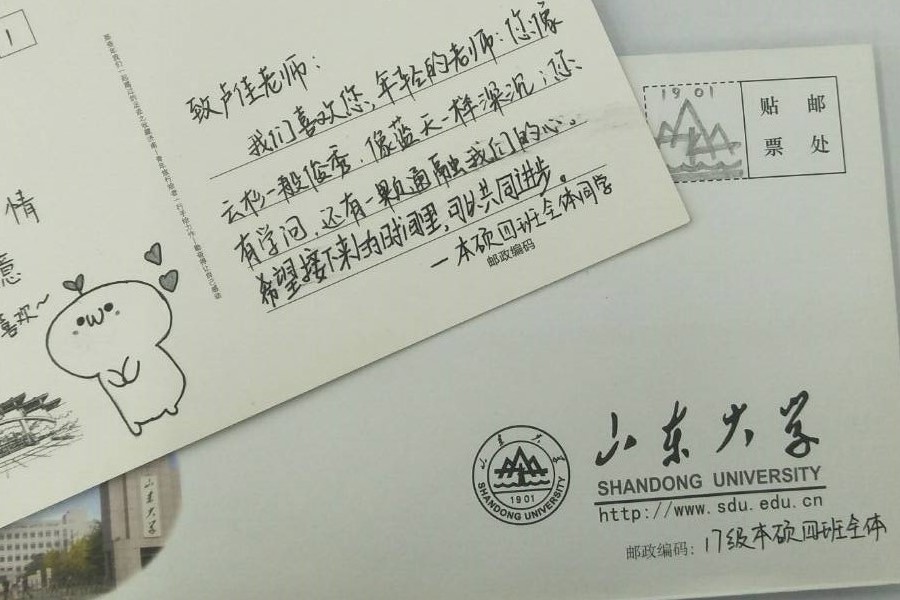 1
致卢佳老师:
我们喜欢您,年轻的老师:您像
云杉一般俊秀,像蓝天一样深沉;您
有学问,还有一颗通融我们的心。
希望接下来的时间里,可以共同进步。
—本硕四班全体同学
邮政编码
情
意
喜欢~
1901
贴 邮
票 处
山东大学
山东大学
SHANDONG UNIVERSITY
1901
山东大学
SHANDONG UNIVERSITY
http://www.sdu.edu.cn
邮政编码: 17级本硕四班全体